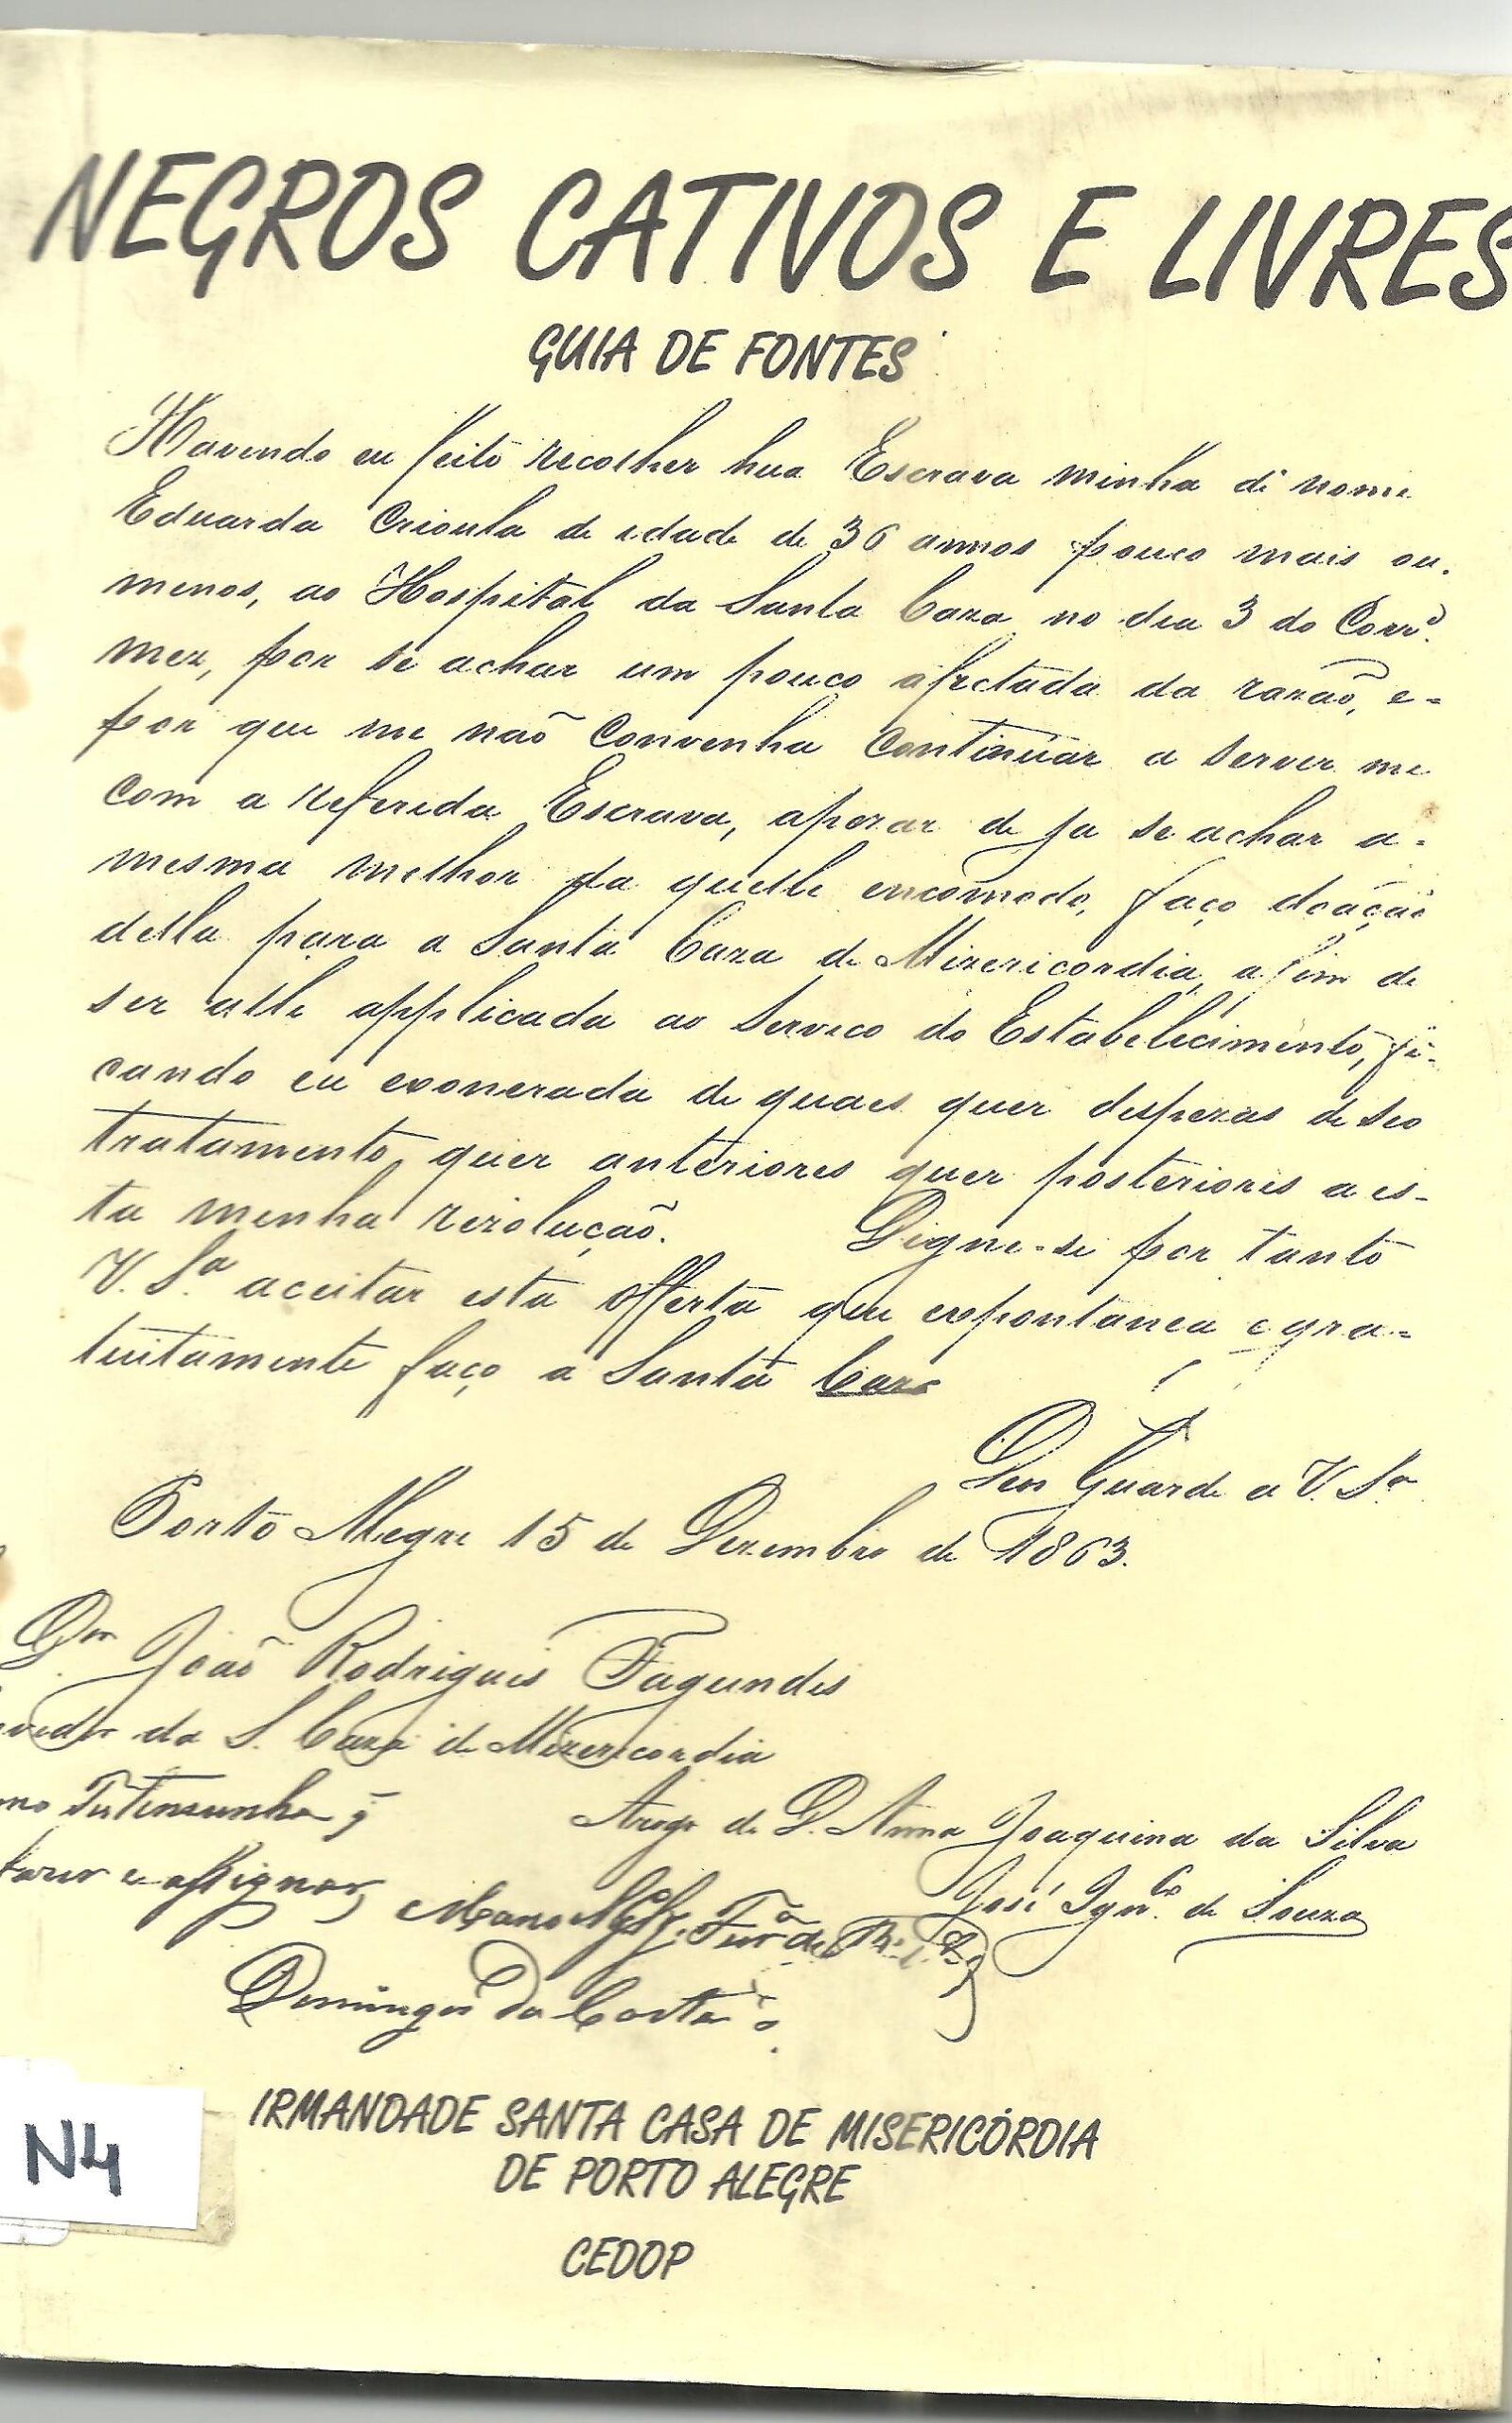 NEGROS CATIVOS E LIVRES
GUIA DE FONTES
Havendo eu feito recolher hua Escrava minha de nome
Eduarda Crioula de idade de 36 annos pouco mais ou
menos, ao Hospital da Santa Caza no dia 3 do Corre.
mez, por se achar um pouco afectada da razão, e=
por que me não Convenha Continuar a servir me
Com a referida Escrava, apezar de ja se achar a=
mesma melhor da quelle encomodo, faço doação
della para a Santa Caza de Mizericordia, a fim de
ser alli applicada ao Serviço do Estabelecimento, fi-
cando eu exonerada de quaes quer despezas de seo
tratamento, quer anteriores quer posteriores a es-
ta minha rezolução. Digne-se por tanto
V. Sa. aceitar esta offerta que expontanea e gra=
tuitamente faço a Santa Caza
Deos Guarde a V. Sa.
Porto Alegre 15 de Dezembro de 1863.
Dor João Rodrigues Fagundes
vedor da S. Caza de Mizericordia
mo Testemunha q
fazer e assignar
Arogo de D. Anna Joaquina da Silva
José Ignco. de Souza
Manoel
Domingos da Costa
N4
IRMANDADE SANTA CASA DE MISERICÓRDIA
DE PORTO ALEGRE
CEDOP